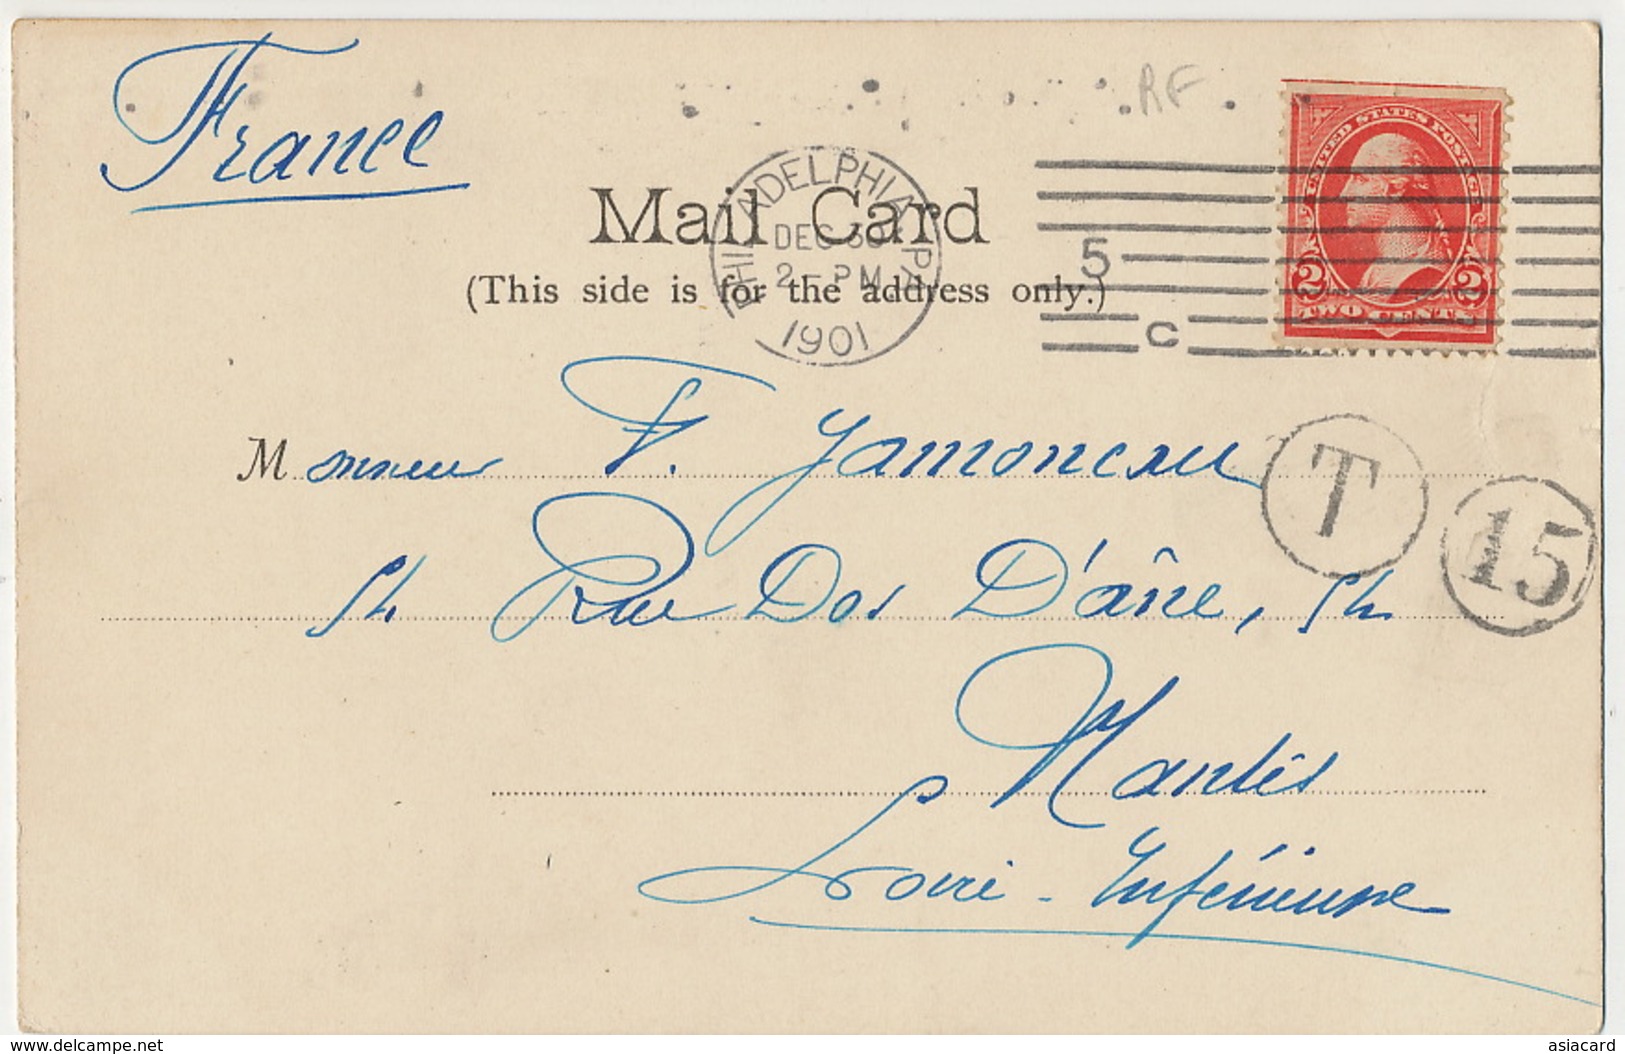 France
RF
Mail Card
(This side is for the address only.)
PHILADELPHIA, PA.
DEC 30
2 - PM
1901
5
C
UNITED STATES POSTAGE
2 2
TWO CENTS
Monsieur F. Jamoneau
T
15
Rue Dos D'âne,
Nantes
Loire-Inférieure
www.delcampe.net
asiacard